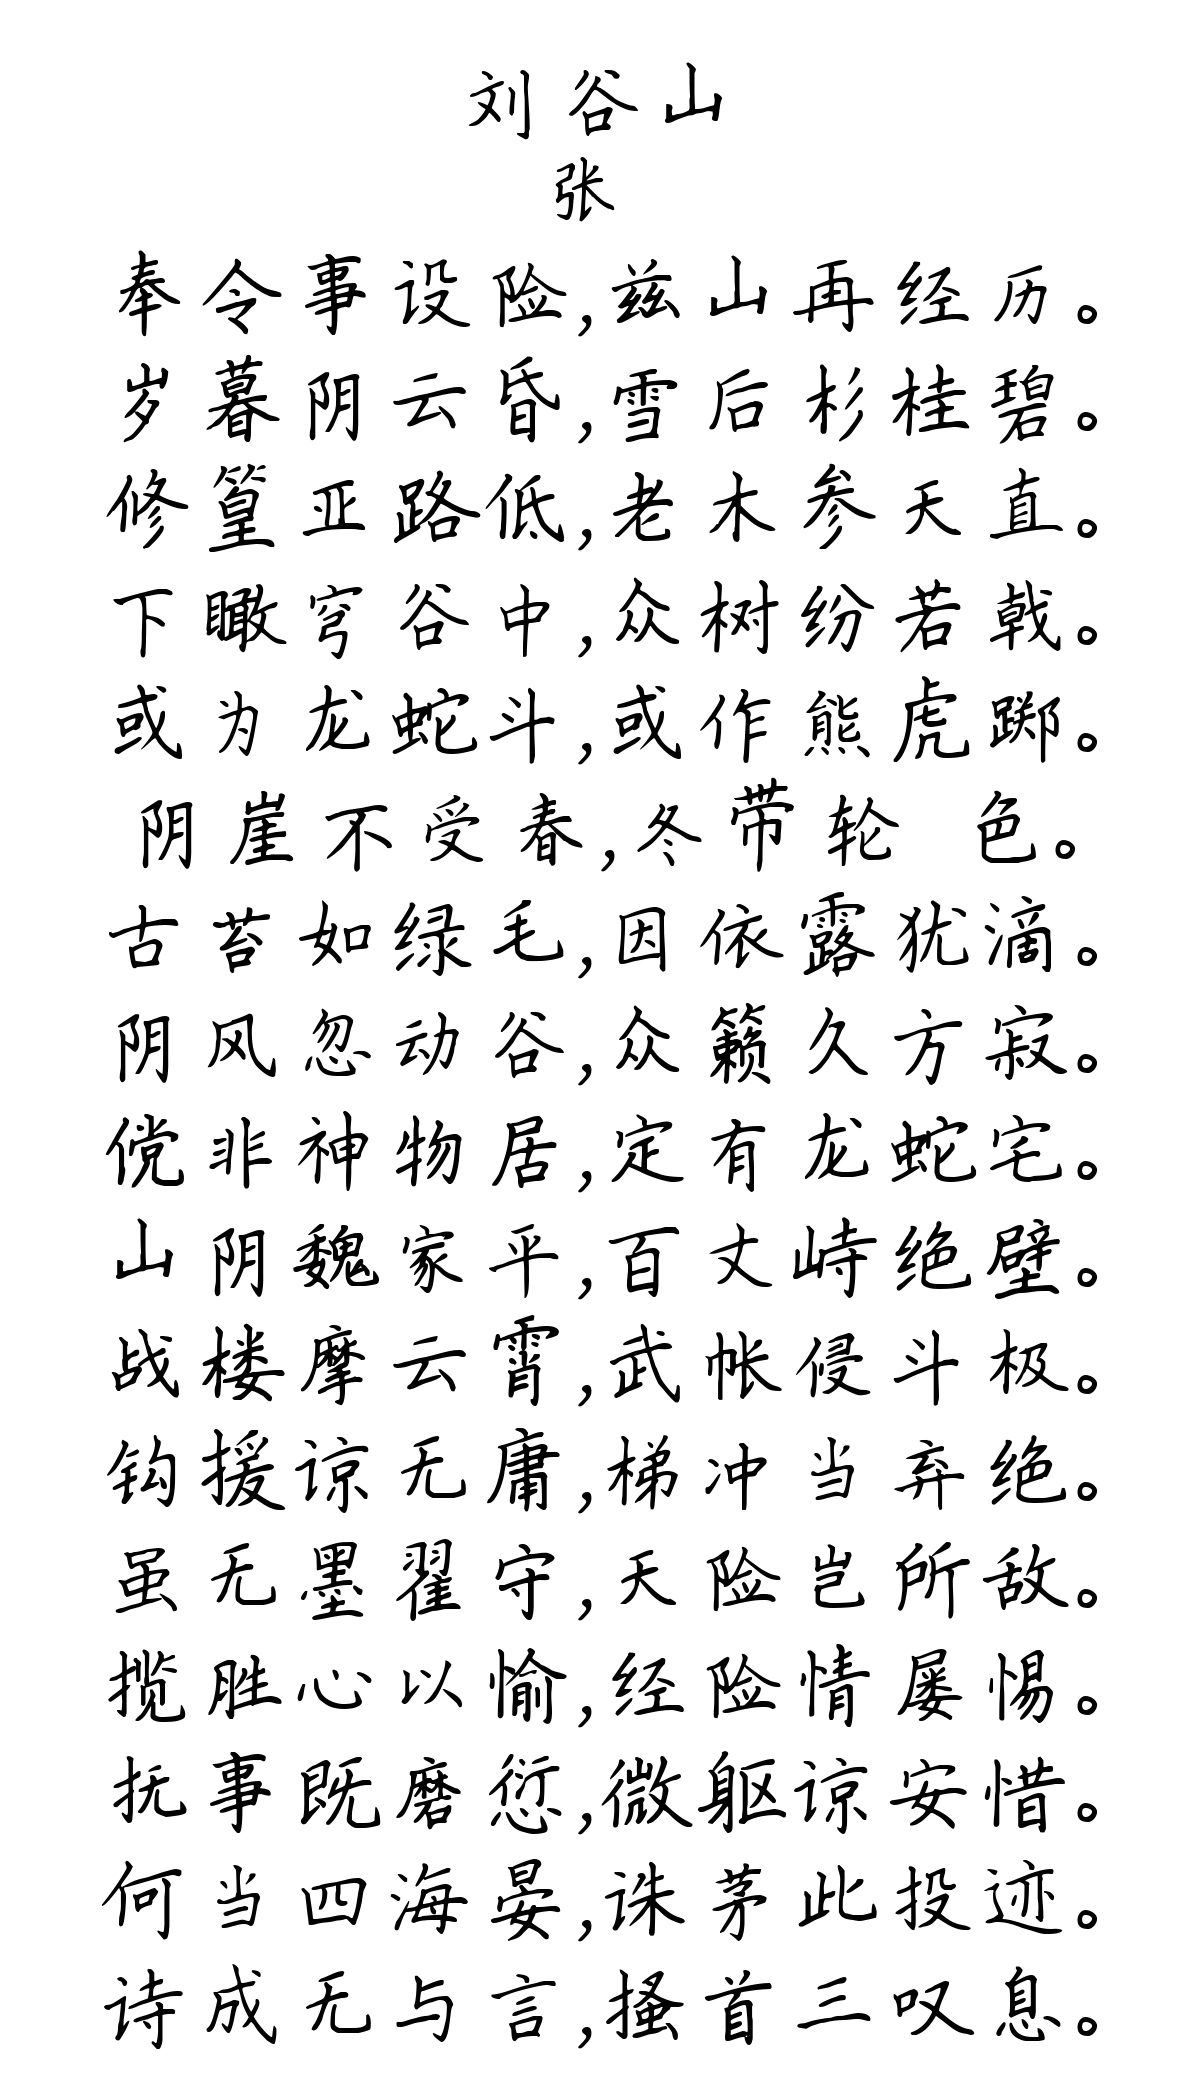 刘谷山
张
奉令事设险,兹山再经历。
岁暮阴云昏,雪后杉桂碧。
修篁亚路低,老木参天直。
下瞰穹谷中,众树纷若戟。
或为龙蛇斗,或作熊虎踯。
阴崖不受春,冬带轮 色。
古苔如绿毛,因依露犹滴。
阴风忽动谷,众籁久方寂。
傥非神物居,定有龙蛇宅。
山阴魏家平,百丈峙绝壁。
战楼摩云霄,武帐侵斗极。
钩援谅无庸,梯冲当弃绝。
虽无墨翟守,天险岂所敌。
揽胜心以愉,经险情屡惕。
抚事既磨愆,微躯谅安惜。
何当四海晏,诛茅此投迹。
诗成无与言,搔首三叹息。